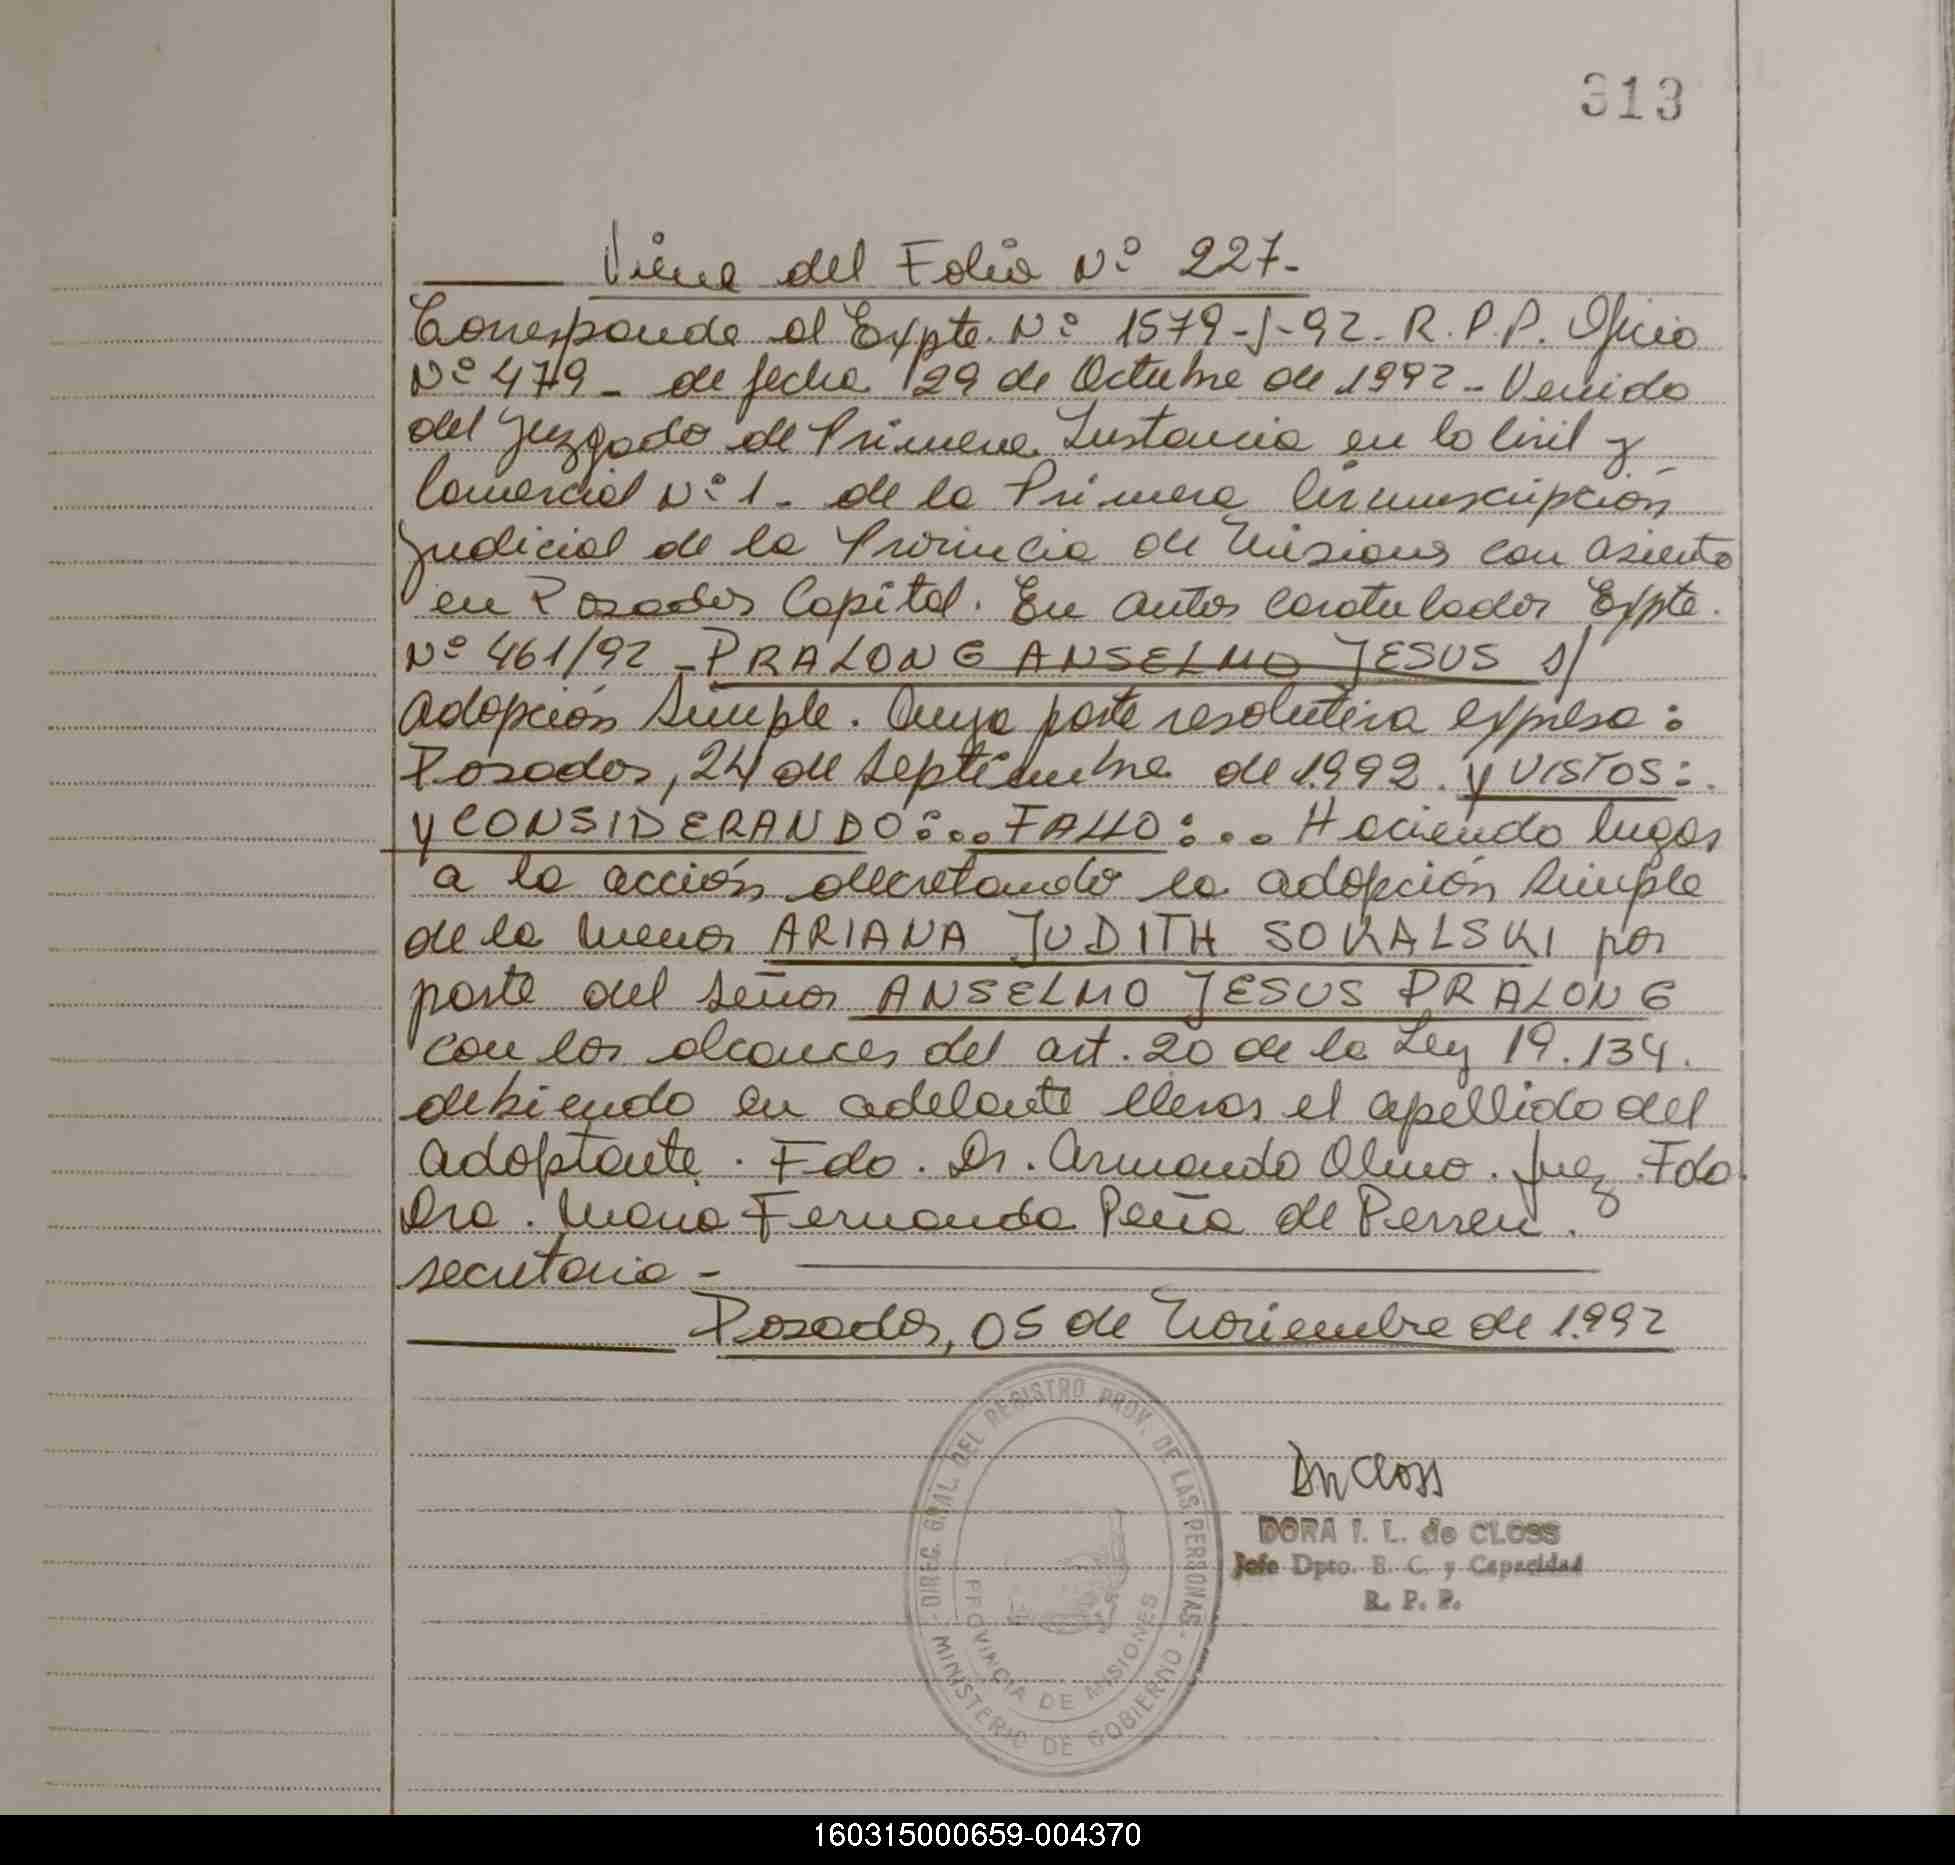 313
Viene del Folio Nº 227-
Corresponde al Expte. Nº 1579-J-92- R.P.P. Oficio
Nº 479- de fecha 29 de Octubre de 1992- Venido
del Juzgado de Primera Instancia en lo Civil y
Comercial Nº 1- de la Primera Circunscripción
Judicial de la Provincia de Misiones con asiento
en Posadas Capital. En autos caratulados Expte.
Nº 461/92 - PRALONG ANSELMO JESUS s/
adopción Simple. Cuya parte resolutiva expresa:
Posadas, 24 de Septiembre de 1.992. y VISTOS:.
y CONSIDERANDO:... FALLO:... Haciendo lugar
a la acción decretando la adopción Simple
de la menor ARIANA JUDITH SOKALSKI por
parte del Señor ANSELMO JESUS PRALONG
con los alcances del art. 20 de la Ley 19.134.
debiendo en adelante llevar el apellido del
adoptante. Fdo. Dr. Armando Olmo. Juez. Fdo.
Dra. Maria Fernanda Peña de Perren.
secretaria-
Posadas, 05 de Noviembre de 1.992
DIREC. GRAL. DEL REGISTRO PROV. DE LAS PERSONAS
PROVINCIA DE MISIONES
MINISTERIO DE GOBIERNO
DORA I. L. de CLOSS
Jefe Dpto. E. C. y Capacidad
R. P. P.
160315000659-004370